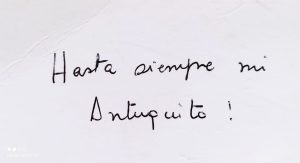 Hasta siempre mi
Antuquito !